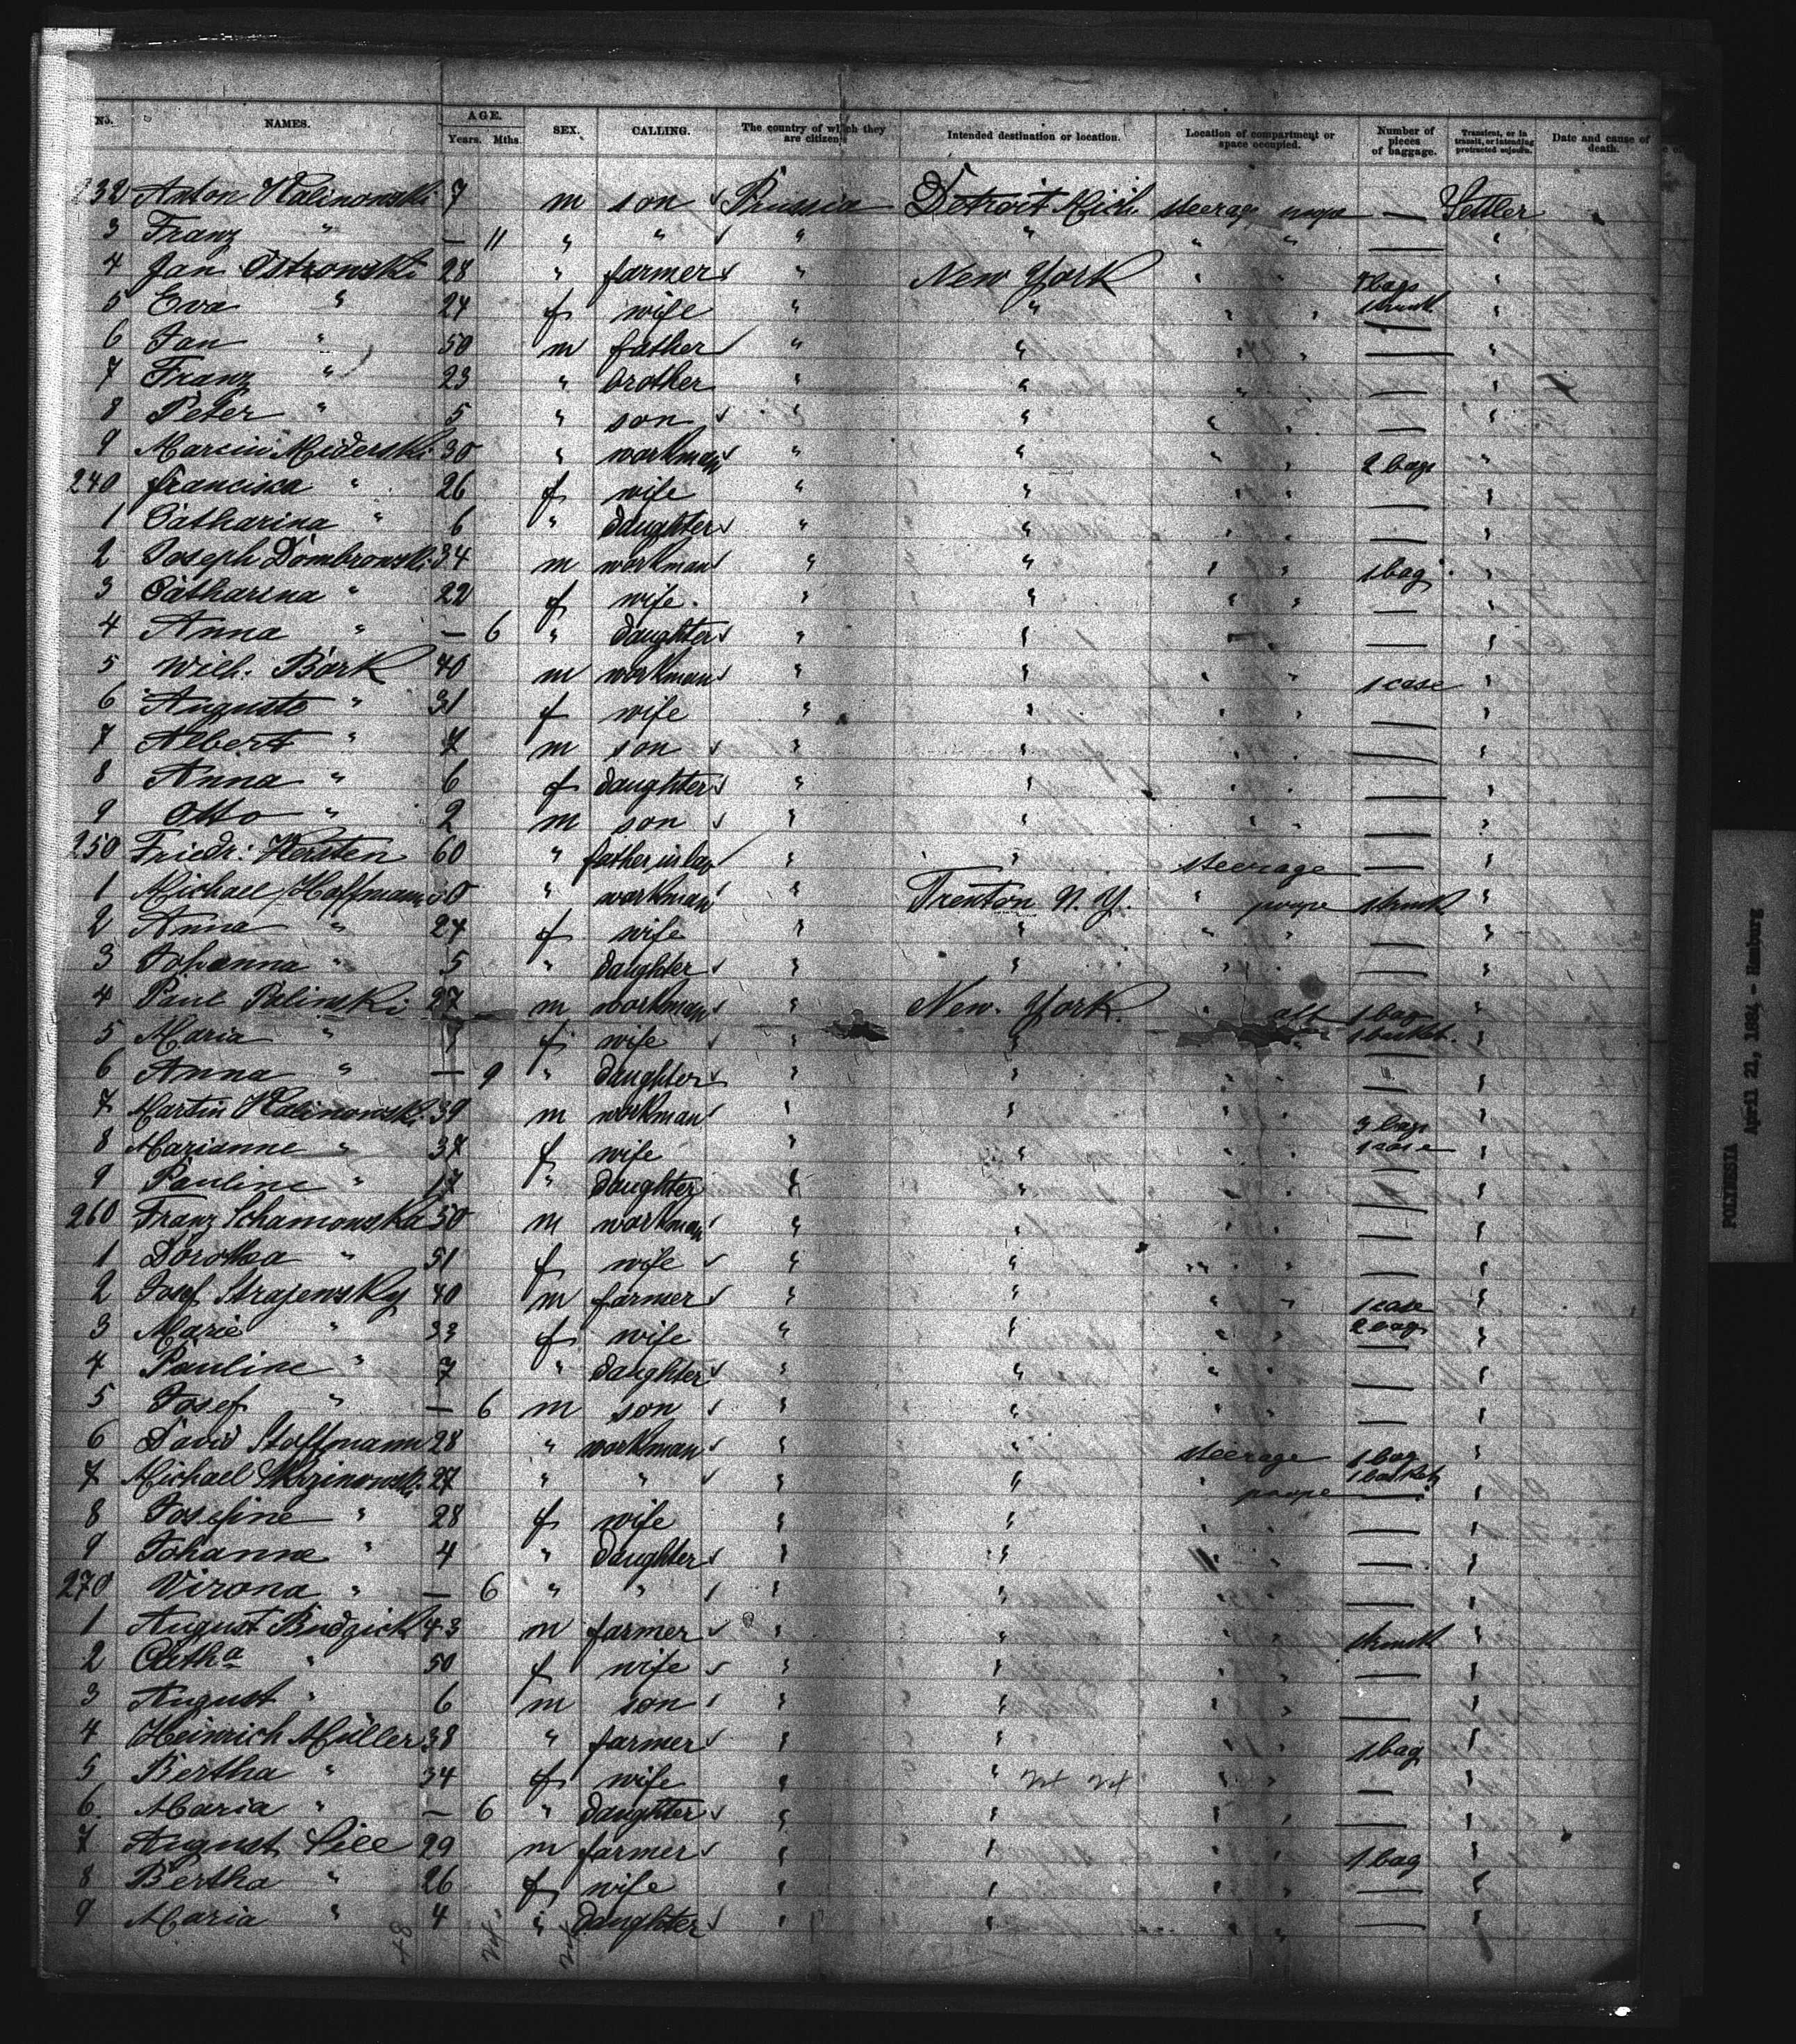 No. NAMES. AGE. Years. Mths. SEX. CALLING. The country of which they are citizens Intended destination or location. Location of compartment or space occupied. Number of pieces of baggage. Transient, or in transit, or intending protracted sojourn. Date and cause of death.
232 Anton Kalinowski 7 m son Prussia Detroit Mich. steerage — Settler
3 Franz " — 11 " " " " " " — "
4 Jan Ostrowski 28 " farmer " New York " " 4 bags "
5 Eva " 24 f wife " " " " 1 trunk "
6 Jan " 50 m father " " " " — "
7 Franz " 23 " brother " " " " — "
8 Peter " 5 " son " " " " — "
9 Marcin Miderski 30 " workman " " " " 2 bags "
240 Francisca " 26 f wife " " " " — "
1 Catharina " 6 " daughter " " " " — "
2 Joseph Dombrowski 34 m workman " " " " 1 bag "
3 Catharina " 22 f wife " " " " — "
4 Anna " — 6 " daughter " " " " — "
5 Wilh. Bark 40 m workman " " " " 1 case "
6 Auguste " 31 f wife " " " " — "
7 Albert " 7 m son " " " " — "
8 Anna " 6 f daughter " " " " — "
9 Otto " 2 m son " " " " — "
250 Friedr: Kersten 60 " father in law " " steerage — "
1 Michael Hoffmann " workman " Trenton N. Y. " poope 1 trunk "
2 Anna " 24 f wife " " " " — "
3 Johanna " 5 " daughter " " " " — "
4 Paul Palinski 27 m workman " New York. " aft 1 bag "
5 Maria " f wife " " " 1 basket "
6 Anna " — 9 " daughter " " " " — "
7 Martin Kalinowski 39 m workman " " " " 3 bags "
8 Marianne " 37 f wife " " " " 1 case "
9 Pauline " 17 " daughter " " " " — "
260 Franz Schamowska 50 m workman " " " " — "
1 Dorothea " 51 f wife " " " " — "
2 Josef Strajewsky 40 m farmer " " " " 1 case "
3 Marie " 33 f wife " " " " 2 bags "
4 Pauline " 7 " daughter " " " " — "
5 Josef " — 6 m son " " " " — "
6 David Stoffmann 28 " workman " " steerage 1 bag "
7 Michael 27 " " " " " poope 1 basket "
8 Josefine " 28 f wife " " " " — "
9 Johanne " 4 " daughter " " " " — "
270 Virona " — 6 " " " " " " — "
1 August Budzick 43 m farmer " " " " 1 trunk "
2 " 50 f wife " " " " — "
3 August " 6 m son " " " " — "
4 Heinrich Müller 38 " farmer " " " " 1 bag "
5 Bertha " 34 f wife " " " " — "
6 Maria " — 6 " daughter " " " " — "
7 August 29 m farmer " " " " 1 bag "
8 Bertha " 26 f wife " " " " — "
9 Maria " 4 " daughter " " " " — "
POLYNESIA
April 21, 1884 - Hamburg